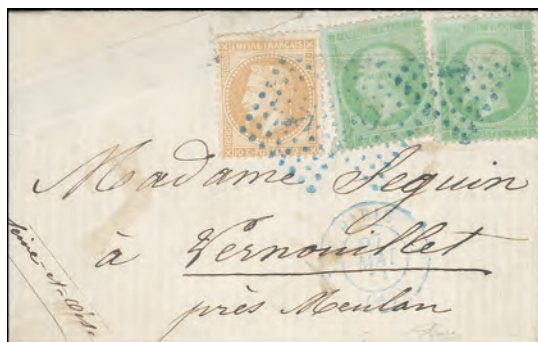 EMPIRE FRANÇAIS
Madame Seguin
à Vernouillet
MAI
près Meulan
Seine-et-Oise